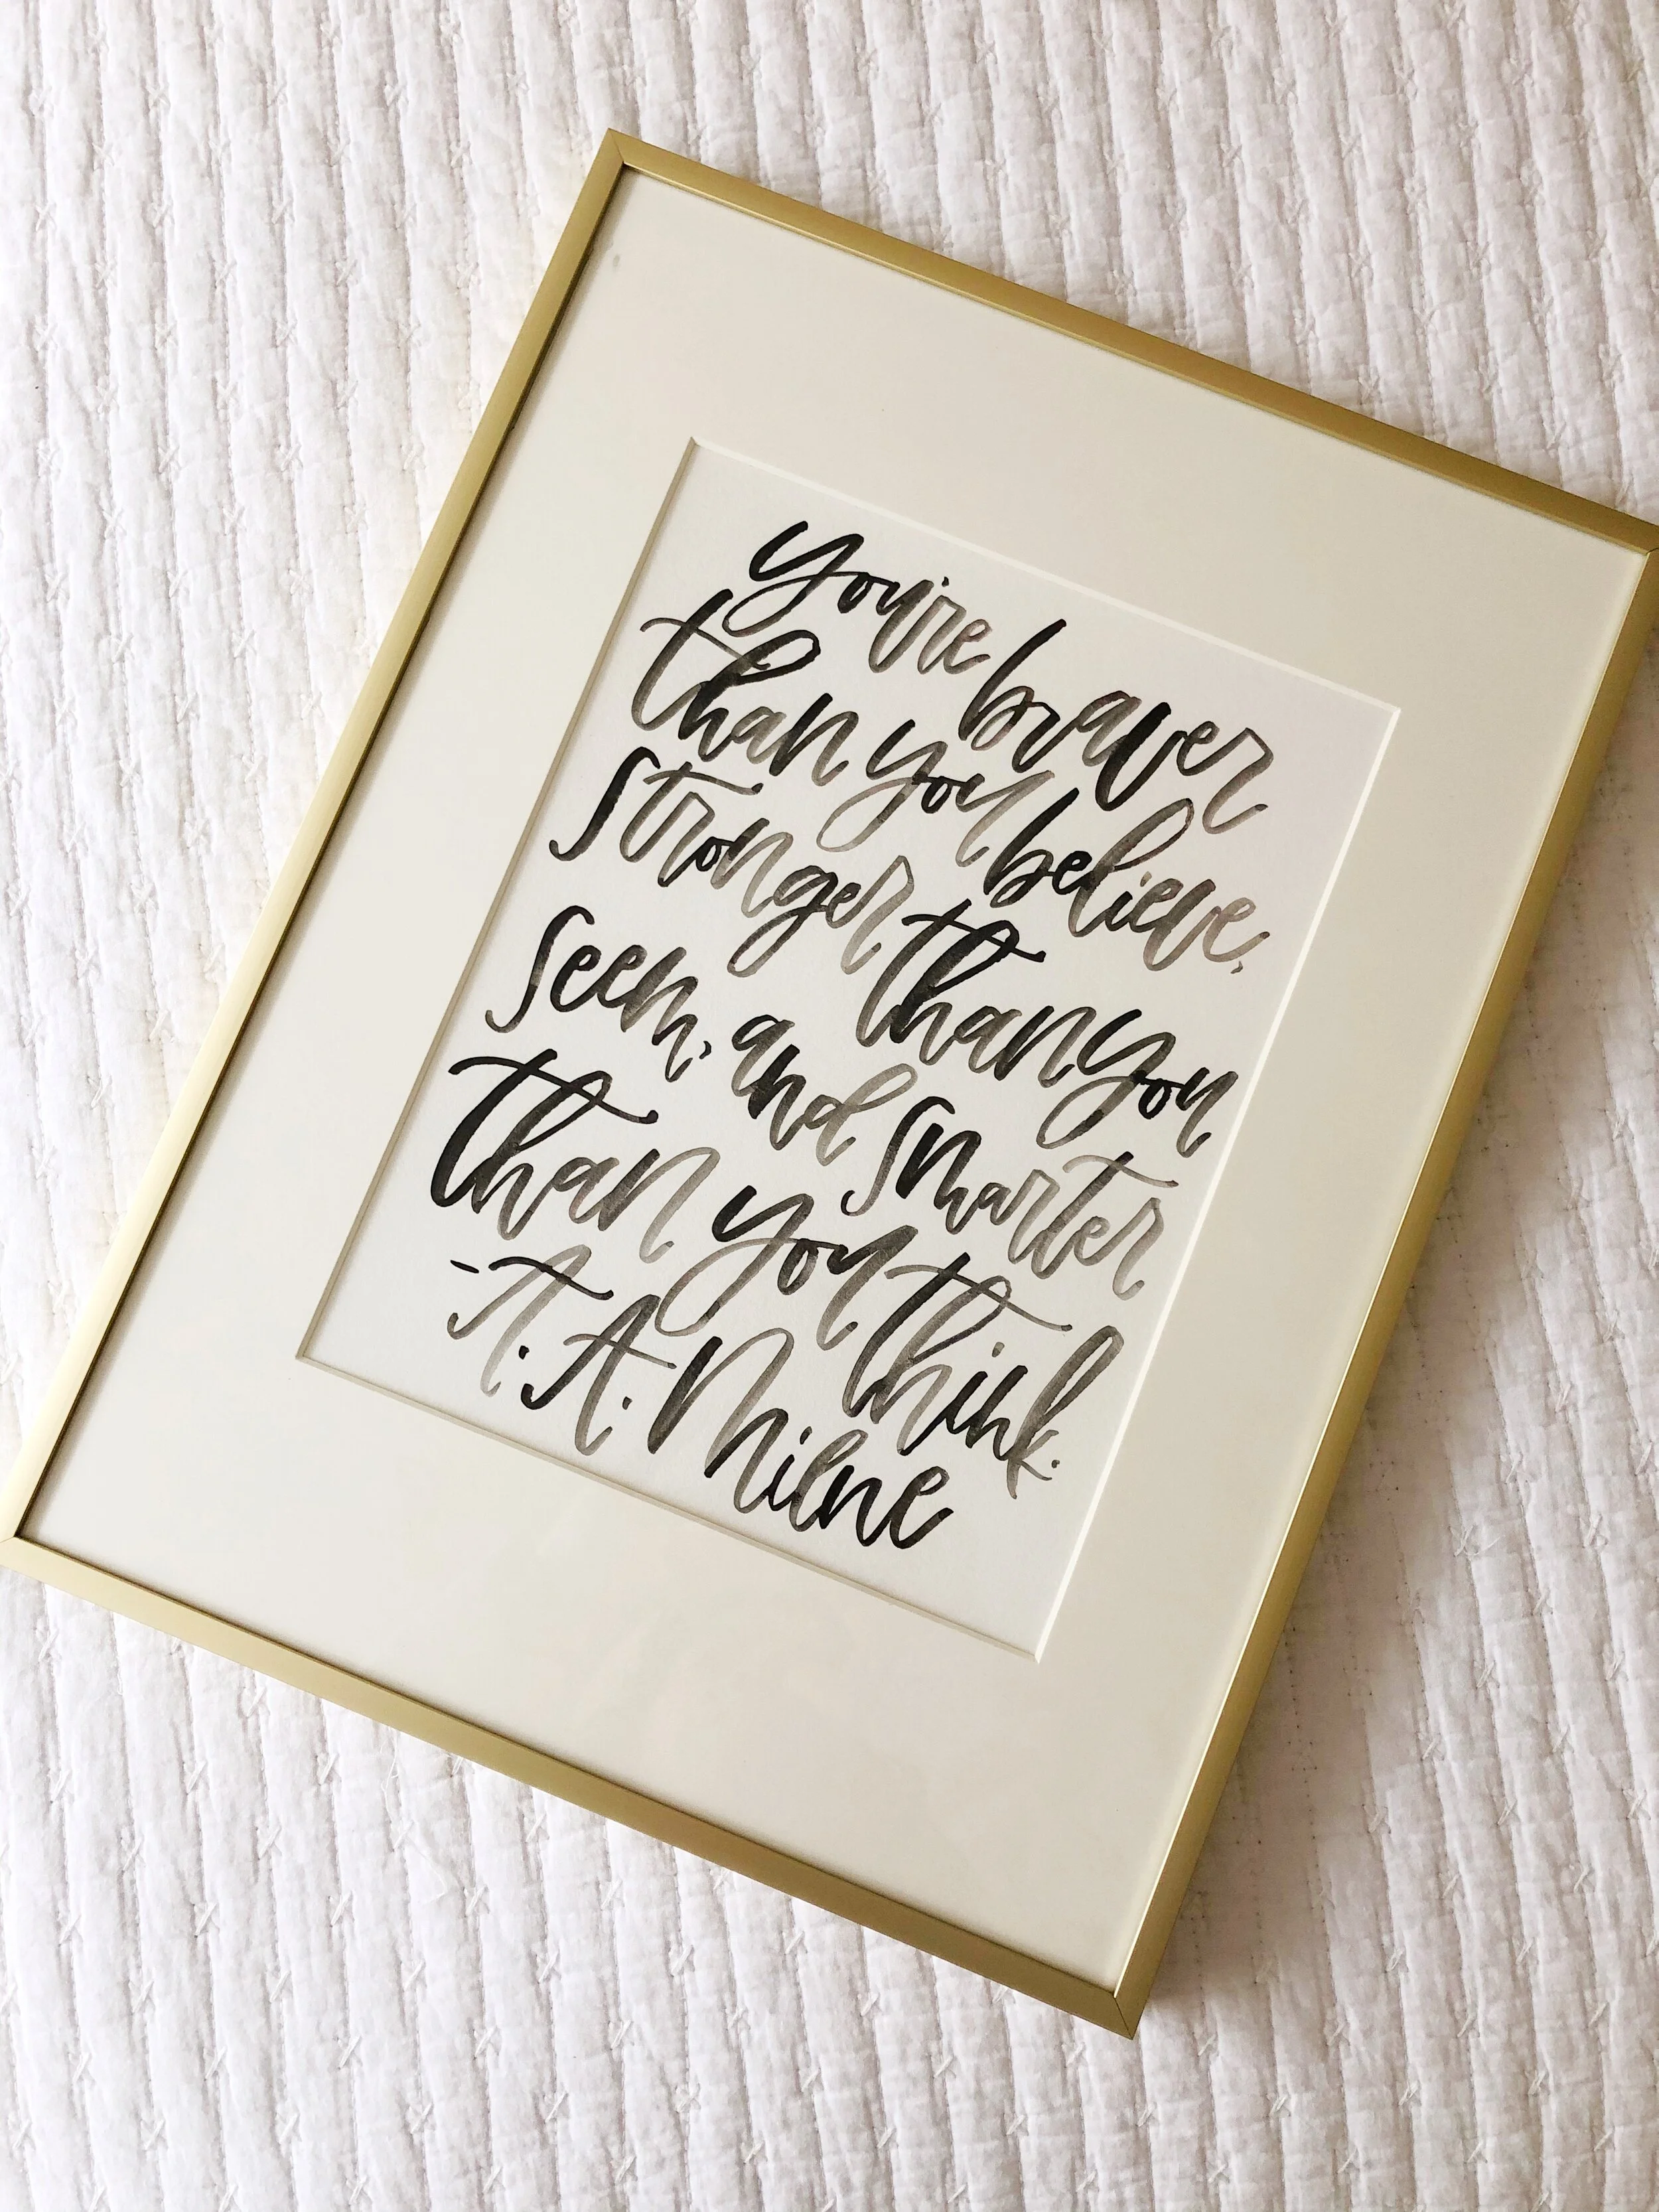 you're braver
than you believe,
stronger than you
seem, and smarter
than you think.
-A.A. Milne